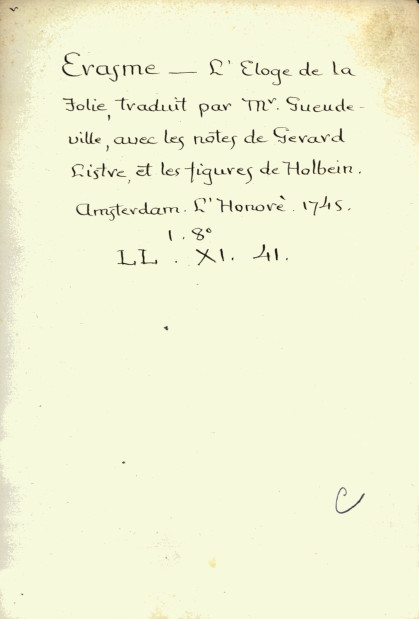 Erasme — L' Eloge de la
Folie, traduit par Mr. Gueude-
ville, avec les notes de Gerard
Listre, et les figures de Holbein.
Amsterdam. L'Honorè. 1745.
1. 8°
LL . XI. 41.
C